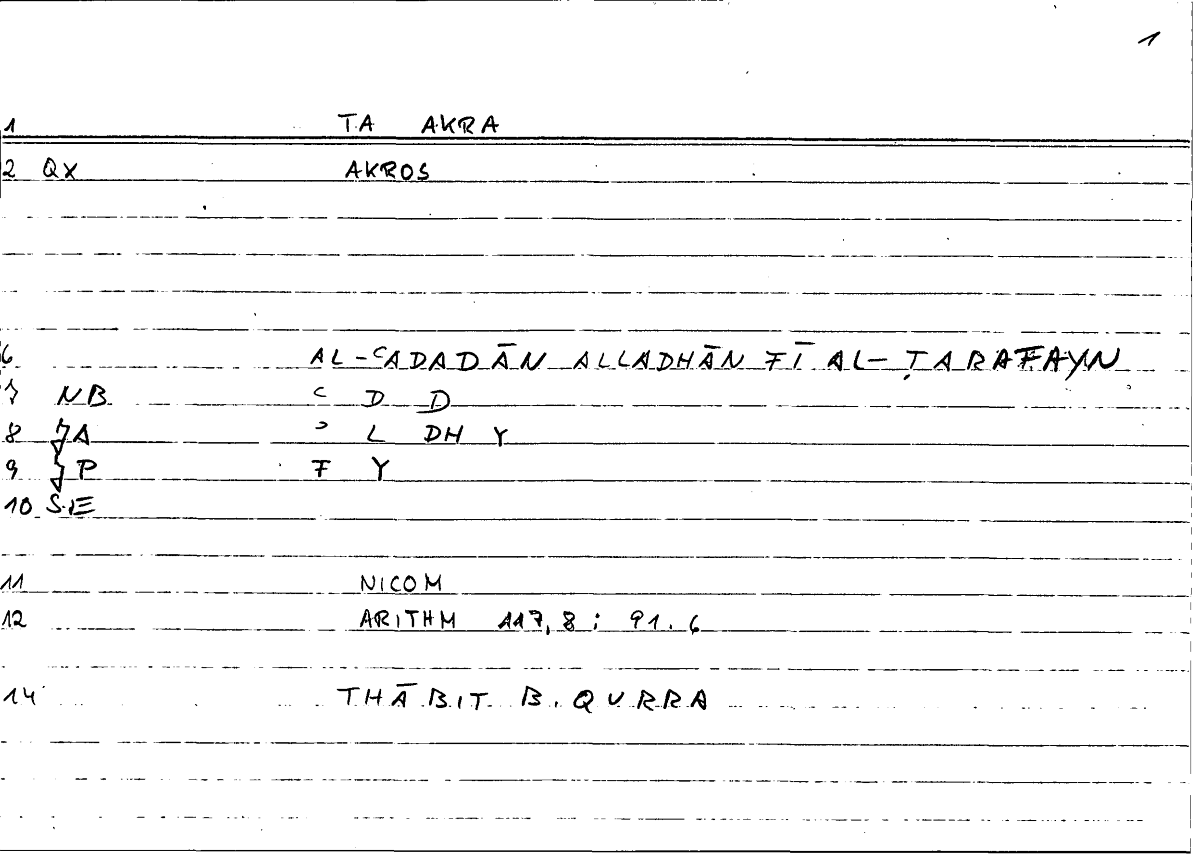 1
1 TA AKRA
2 QX AKROS
6 AL-ʿADADĀN ALLADHĀN FĪ AL-ṬARAFAYN
7 NB ʿ D D
8 JA ʾ L DH Y
9 JP F Y
10 SE
11 NICOM
12 ARITHM 117,8 ; 91.6
14 THĀBIT B. QURRA